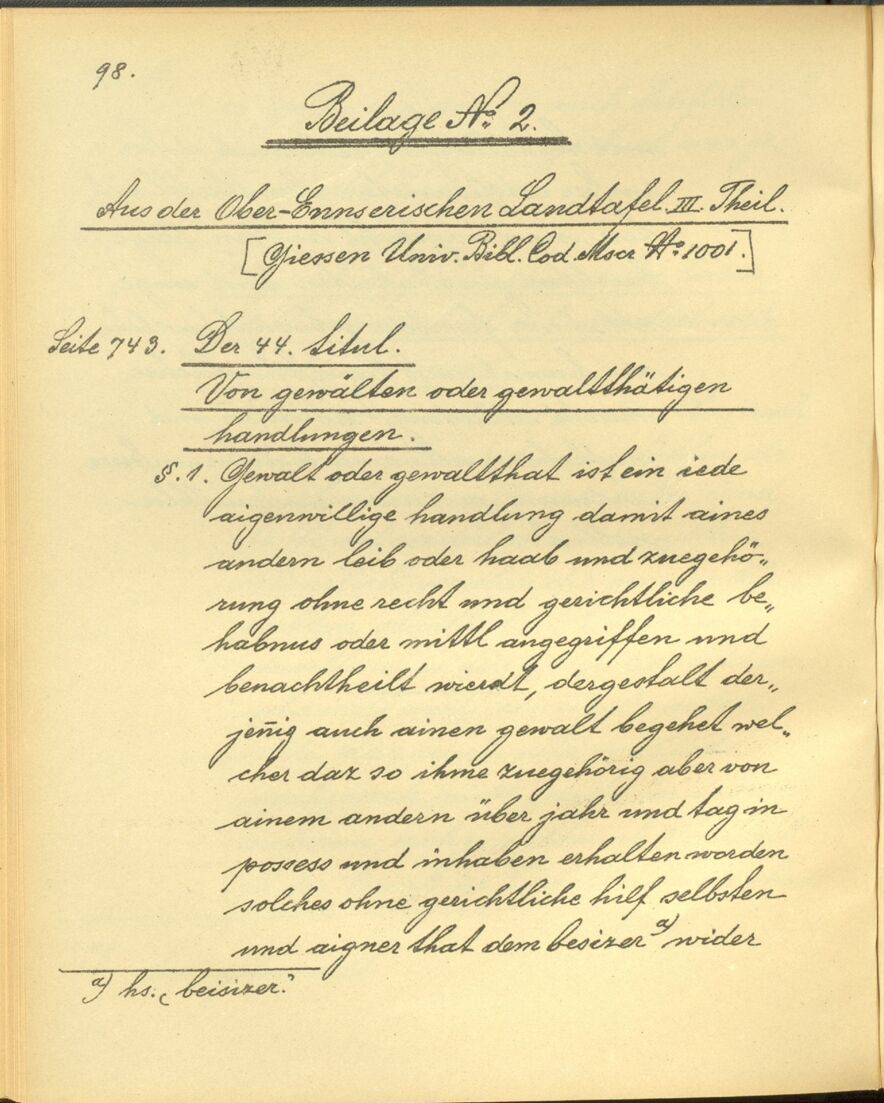 98.
Beilage No. 2.
Aus der Ober-Ennserischen Landtafel. III. Theil.
[Giessen Univ. Bibl. Cod. Mscr No. 1001.]
Seite 743. Der 44. titul.
Von gewälten oder gewaltthätigen
handlungen.
§. 1. Gewalt oder gewaltthat ist ein iede
aigenwillige handlung damit aines
andern leib oder haab und zuegehö„
rung ohne recht und gerichtliche be„
habnus oder mittl angegriffen und
benachtheilt wierdt, dergestalt der„
jen̄ig auch ainen gewalt begehet wel„
cher daz so ihme zuegehörig aber von
ainem andern über jahr und tag in
possess und inhaben erhalten worden
solches ohne gerichtliche hilf selbsten
und aigner that dem besizer a) wider
a) hs. „beisizer."